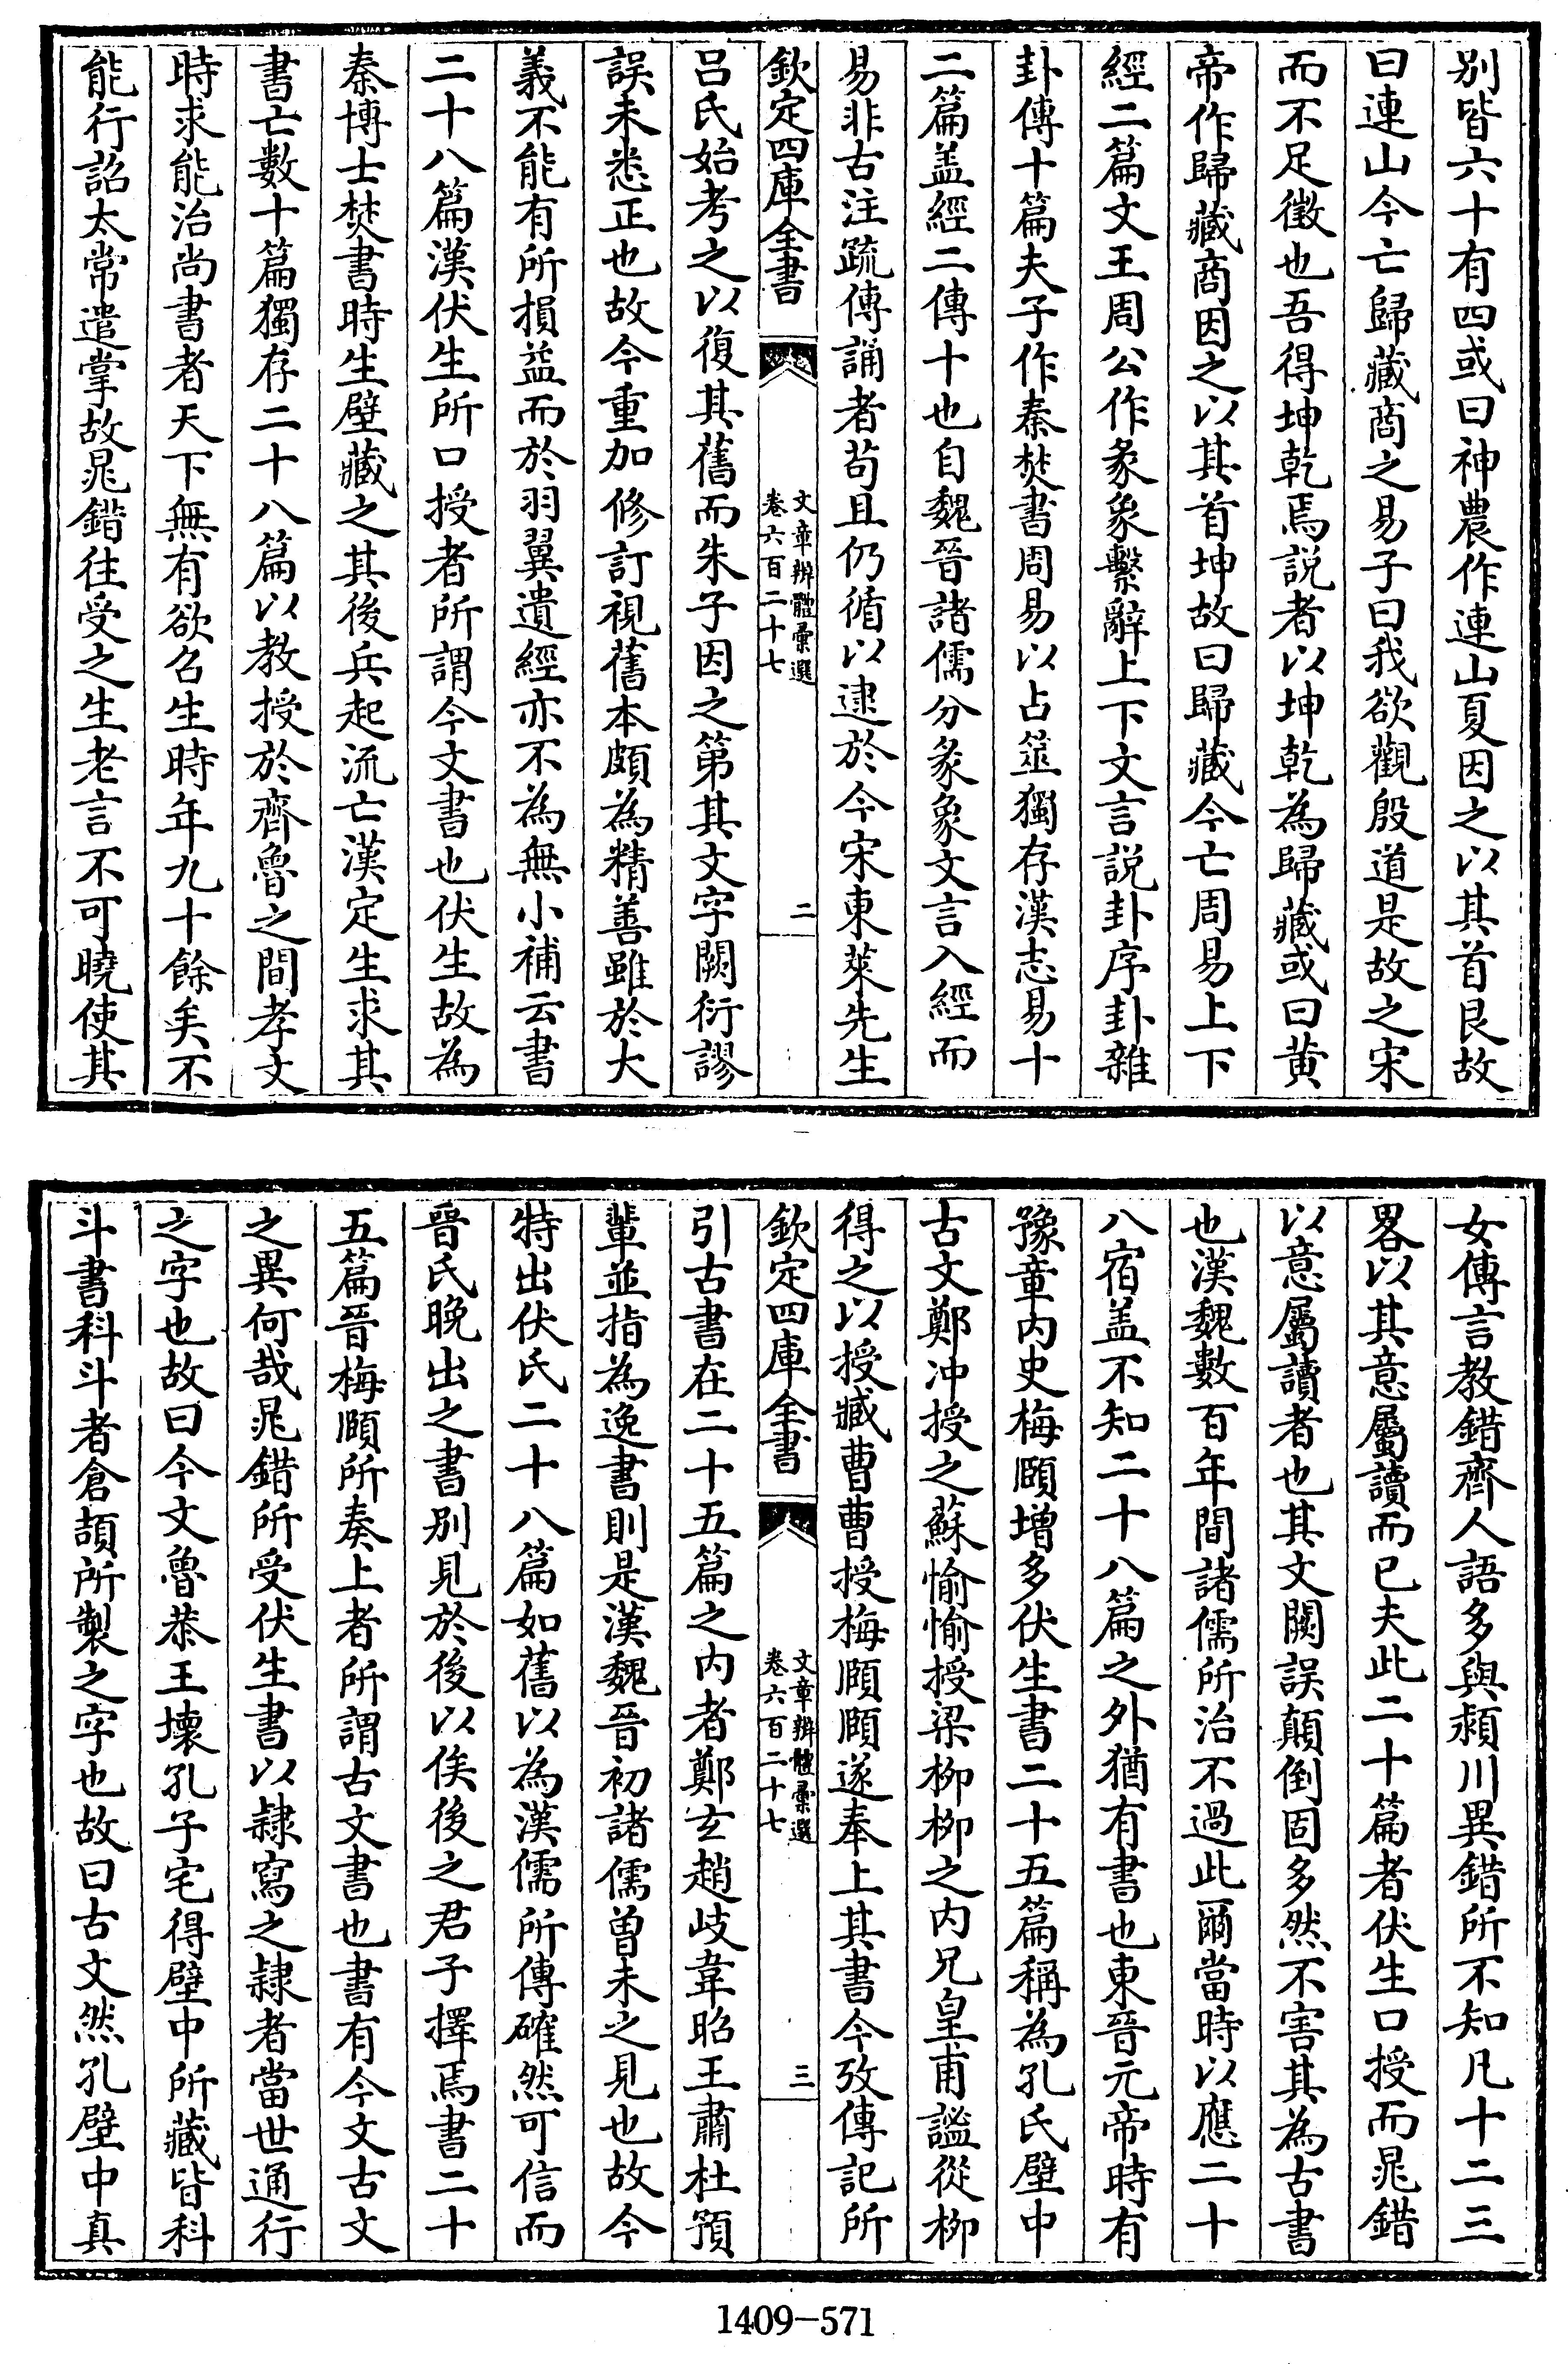 别皆六十有四或曰神農作連山夏因之以其首艮故
曰連山今亡歸藏商之易子曰我欲觀殷道是故之宋
而不足徵也吾得坤乾焉説者以坤乾為歸藏或曰黄
帝作歸藏商因之以其首坤故曰歸藏今亡周易上下
經二篇文王周公作彖象繫辭上下文言説卦序卦雜
卦傳十篇夫子作秦焚書周易以占筮獨存漢志易十
二篇盖經二傳十也自魏晉諸儒分彖象文言入經而
易非古注疏傳誦者苟且仍循以逮於今宋東萊先生
欽定四庫全書
文章辨體彚選
卷六百二十七
二
吕氏始考之以復其舊而朱子因之第其文字闕衍謬
誤未悉正也故今重加修訂視舊本頗為精善雖於大
義不能有所損益而於羽翼遺經亦不為無小補云書
二十八篇漢伏生所口授者所謂今文書也伏生故為
秦博士焚書時生壁藏之其後兵起流亡漢定生求其
書亡數十篇獨存二十八篇以教授於齊魯之間孝文
時求能治尚書者天下無有欲召生時年九十餘矣不
能行詔太常遣掌故晁錯往受之生老言不可曉使其
女傳言教錯齊人語多與潁川異錯所不知凡十二三
畧以其意屬讀而已夫此二十篇者伏生口授而晁錯
以意屬讀者也其文闕誤顛倒固多然不害其為古書
也漢魏數百年間諸儒所治不過此爾當時以應二十
八宿盖不知二十八篇之外猶有書也東晉元帝時有
豫章内史梅頤增多伏生書二十五篇稱為孔氏壁中
古文鄭冲授之蘇愉愉授梁柳柳之内兄皇甫謐從柳
得之以授臧曹曹授梅頤頤遂奉上其書今攷傳記所
欽定四庫全書
文章辨體彚選
卷六百二十七
三
引古書在二十五篇之内者鄭玄趙岐韋昭王肅杜預
輩並指為逸書則是漢魏晉初諸儒曽未之見也故今
特出伏氏二十八篇如舊以為漢儒所傳確然可信而
晉氏晚出之書别見於後以俟後之君子擇焉書二十
五篇晉梅頤所奏上者所謂古文書也書有今文古文
之異何哉晁錯所受伏生書以隷寫之隷者當世通行
之字也故曰今文魯恭王壊孔子宅得壁中所藏皆科
斗書科斗者倉頡所製之字也故曰古文然孔壁中真
1409-571